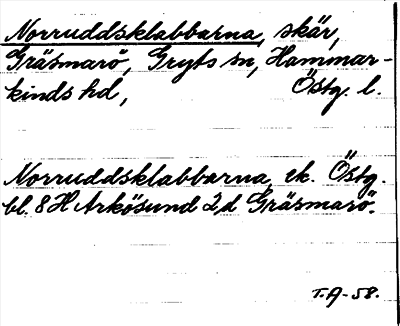 Norruddsklabbarna, skär,
Gräsmarö, Gryts sn, Hammar-
kinds hd, Östg. l.
Norruddsklabbarna, ek. Östg.
bl. 8 H Arkösund 2d Gräsmarö.
T.A-58.